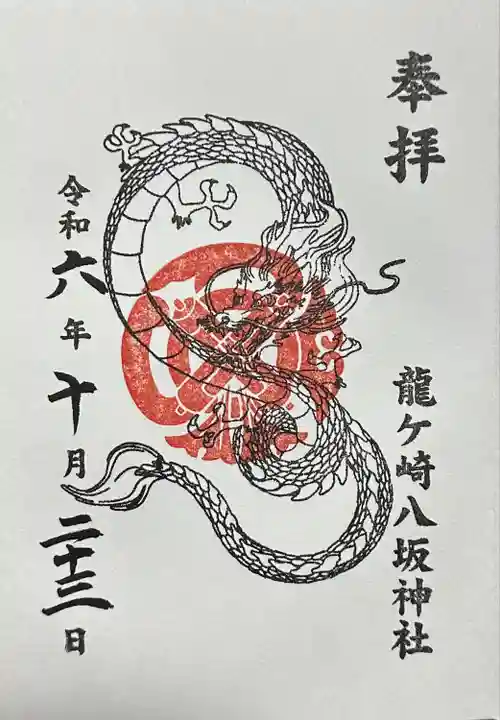 奉拝
龍ケ崎八坂神社
令和六年十月二十三日